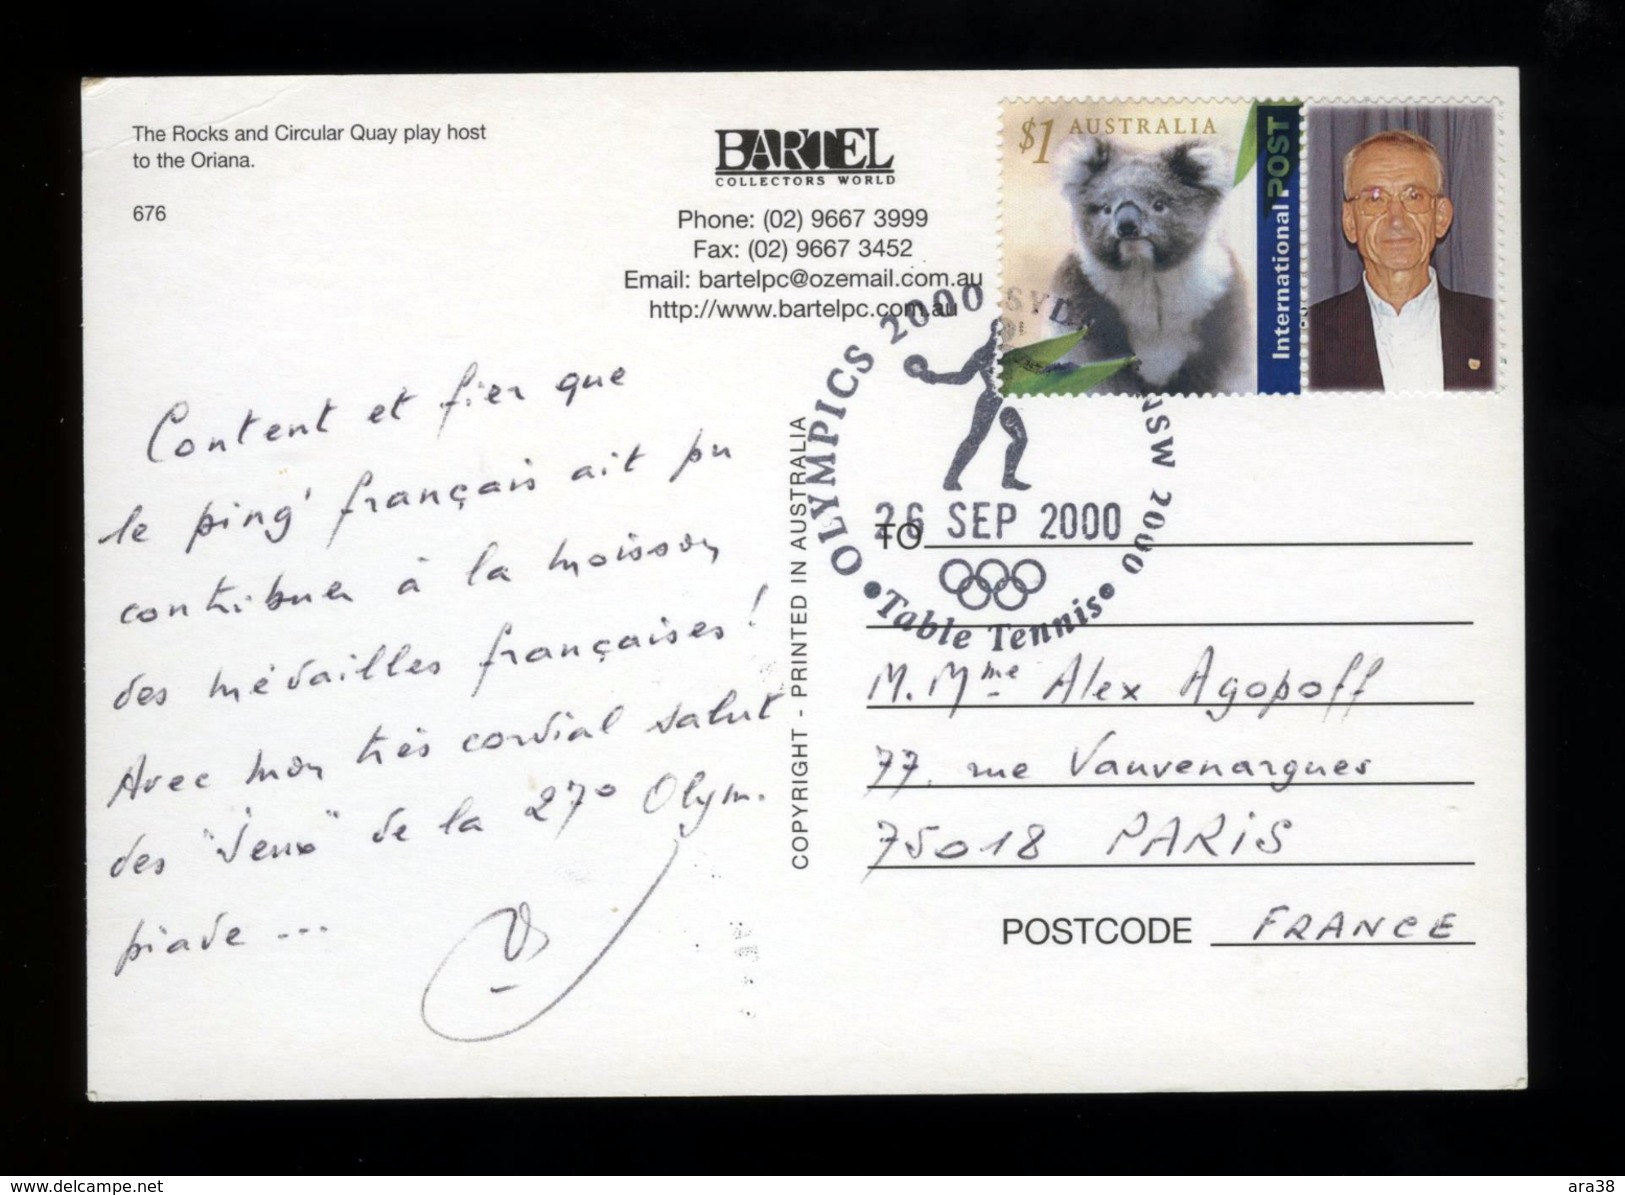 The Rocks and Circular Quay play host
to the Oriana.
676
BARTEL
COLLECTORS WORLD
Phone: (02) 9667 3999
Fax: (02) 9667 3452
Email: bartelpc@ozemail.com.au
http://www.bartelpc.com.au
$1 AUSTRALIA
International POST
OLYMPICS 2000 SYD NSW 2000
26 SEP 2000
Table Tennis
Content et fier que
le ping' français ait pu
contribuer à la moisson
des médailles françaises !
Avec mon très cordial salut
des "Jeux" de la 27° Olym.
piade ...
COPYRIGHT - PRINTED IN AUSTRALIA
TO
M. Mme Alex Agopoff
77, rue Vauvenargues
75018 PARIS
POSTCODE FRANCE
www.delcampe.net
ara38